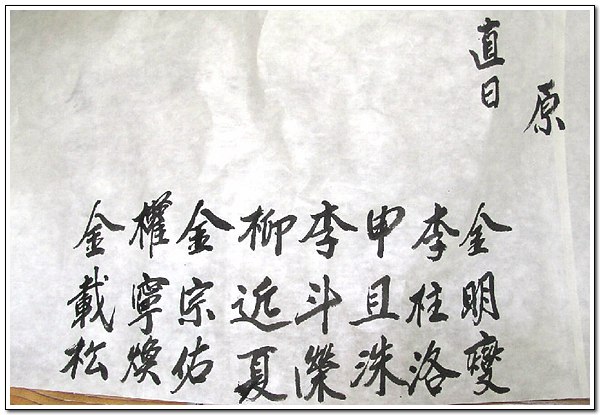 原
直日
金明燮
李柱洛
申且洙
李斗榮
柳近夏
金宗佑
權寧煥
金載松